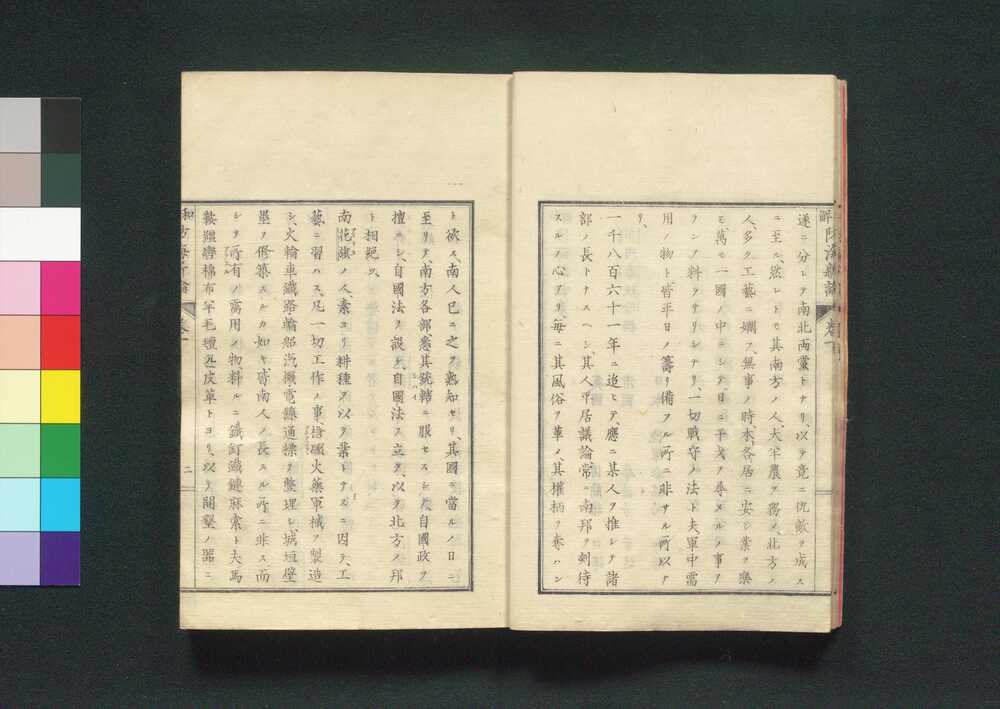 遂ニ分レテ南北両黨トナリ、以テ竟ニ仇敵ヲ成ス
ニ至ル、然レトモ其南方ノ人、大半農ヲ務メ、北方ノ
人、多ク工藝ニ嫺フ、無事ノ時、本、各居ニ安シ業ヲ樂
ミ、萬モ一國ノ中ニシテ日ニ干戈ヲ尋メルノ事ヲ
ランヲ料ラサリシナリ、一切戰守ノ法ト夫軍中需
用ノ物ト、皆平日ノ籌リ備フル所ニ非サル所以ナ
リ、
一千八百六十一年ニ迨ヒテ、應ニ某人ヲ推シテ諸
部ノ長トナスヘシ、其人平居議論、常ニ南邦ヲ剋待
スルノ心アリ、毎ニ其風俗ヲ革メ、其權柄ヲ奪ハン
ト欲ス、南人已ニ之ヲ熟知セリ、其國ニ當ルノ日ニ
至リテ、南方各部、悉其統轄ニ服セスシテ、自國政ヲ
擅ニシ、自國法ヲ設ケ、自國法ヲ立テ、以テ北方ノ邦
ト相絶ツ、
南花旗ノ人、素ヨリ耕種ヲ以テ業トナスニ因テ、工
藝ニ習ハス、凡一切工作ノ事、槍礮火藥軍械ヲ製造
シ、火輪車鐵路輪船汽機電線通標ヲ整理シ、城垣壁
壘ヲ修築スルカ如キ、皆南人ノ長スル所ニ非ス、而
シテ所有ノ需用ノ物料、ルニ鐵釘鐵鏈麻索ト夫馬
鞍韁轡棉布羊毛壇並皮革トヨリ、以テ開墾ノ器ニ
二